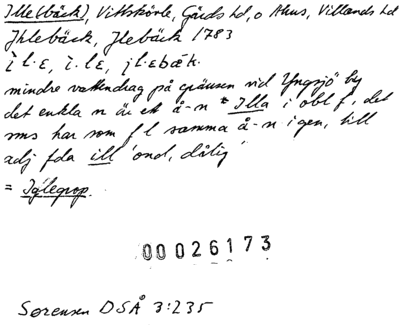 Ille(bäck), Vittskövle, Gärds hd, o Åhus, Villands hd
Jhlebäck, Jlebäck 1783
mindre vattendrag på gränsen vid Yngsjö by
det enkla n är ett å-n * Illa i obl f, det
sms har som f l samma å-n i gen, till
adj fda ill 'ond, dålig'
= Iglegrop.
00026173
Sørensen DSÅ 3:235